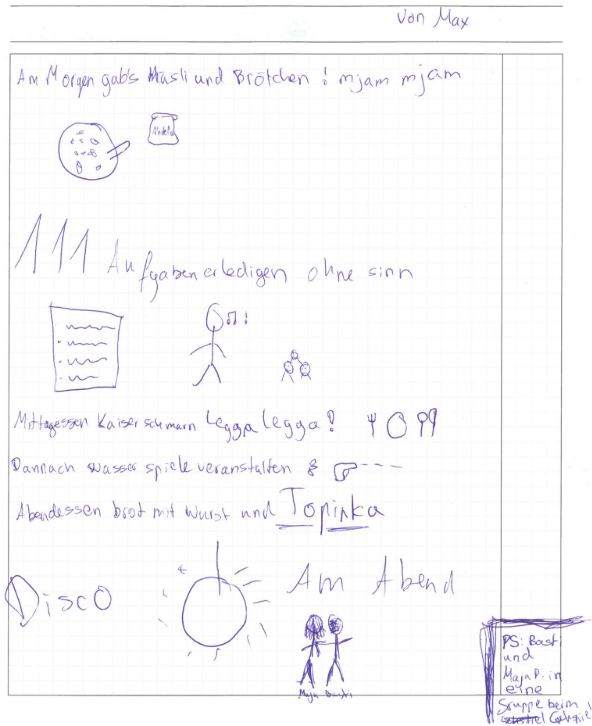 Von Max
Am Morgen gab's Müsli und Brötchen ! mjam mjam
Nutella
111 Aufgaben erledigen ohne sinn
Mittagessen Kaiserschmarn Legga Legga!
Dannach wasserspiele veranstalten
Abendessen brot mit wurst und Topinka
Disco Am Abend
Maja Basti
PS: Basti
und
Maja P. in
eine
Gruppe beim